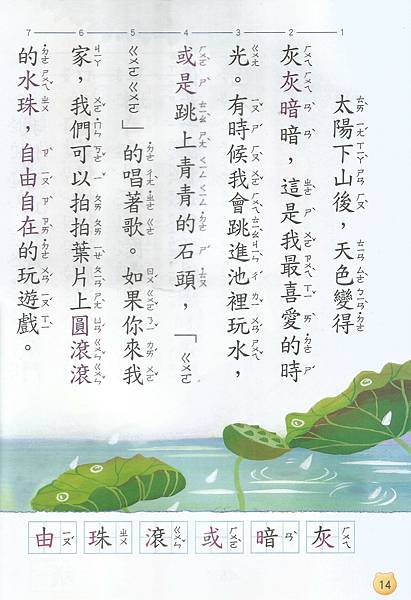 7 6 5 4 3 2 1
太陽下山後，天色變得
灰灰暗暗，這是我最喜愛的時
光。有時候我會跳進池裡玩水，
或是跳上青青的石頭，「ㄍㄨㄛ
ㄍㄨㄛ ㄍㄨㄛ」的唱著歌。如果你來我
家，我們可以拍拍葉片上圓滾滾
的水珠，自由自在的玩遊戲。
灰ㄏㄨㄟ
暗ㄢˋ
或ㄏㄨㄛˋ
滾ㄍㄨㄣˇ
珠ㄓㄨ
由ㄧㄡˊ
14